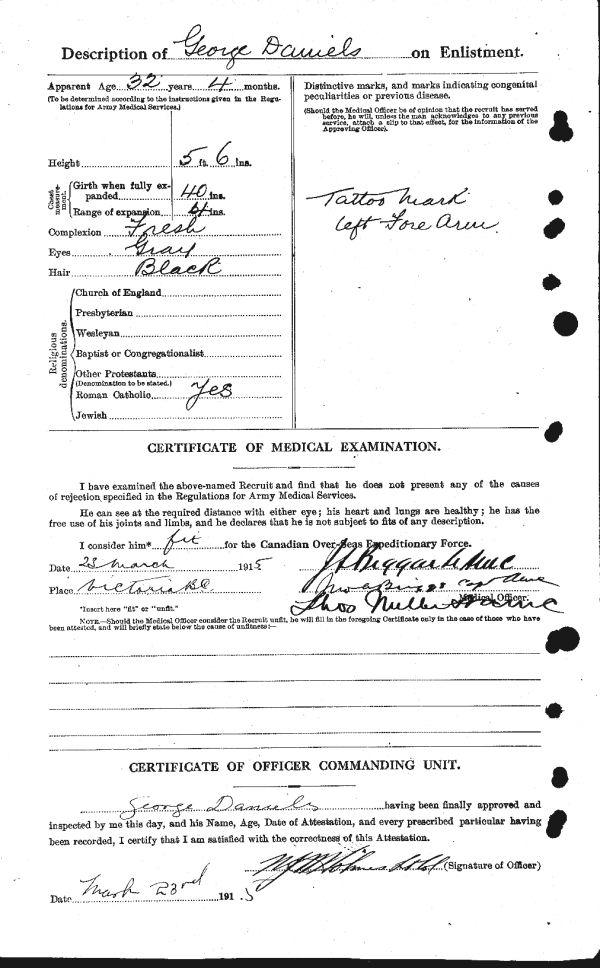 Description of George Daniels on Enlistment.
Apparent Age 32 years 4 months.
(To be determined according to the instructions given in the Regu-
lations for Army Medical Services.)
Height 5 ft. 6 ins.
Chest measure-ment.
Girth when fully ex-
panded 40 ins.
Range of expansion 4 ins.
Complexion Fresh
Eyes Gray
Hair Black
Religious denominations.
Church of England
Presbyterian
Wesleyan
Baptist or Congregationalist
Other Protestants
(Denomination to be stated.)
Roman Catholic Yes
Jewish
Distinctive marks, and marks indicating congenital
peculiarities or previous disease.
(Should the Medical Officer be of opinion that the recruit has served
before, he will, unless the man acknowledges to any previous
service, attach a slip to that effect, for the information of the
Approving Officer).
Tattoo Mark
left Fore Arm.
CERTIFICATE OF MEDICAL EXAMINATION.
I have examined the above-named Recruit and find that he does not present any of the causes
of rejection specified in the Regulations for Army Medical Services.
He can see at the required distance with either eye; his heart and lungs are healthy; he has the
free use of his joints and limbs, and he declares that he is not subject to fits of any description.
I consider him* fit for the Canadian Over-Seas Expeditionary Force.
Date 23 March 1915
Place Victoria BC
Medical Officer.
*Insert here "fit" or "unfit."
NOTE.—Should the Medical Officer consider the Recruit unfit, he will fill in the foregoing Certificate only in the case of those who have
been attested, and will briefly state below the cause of unfitness:—
CERTIFICATE OF OFFICER COMMANDING UNIT.
George Daniels having been finally approved and
inspected by me this day, and his Name, Age, Date of Attestation, and every prescribed particular having
been recorded, I certify that I am satisfied with the correctness of this Attestation.
(Signature of Officer)
Date March 23rd 1915